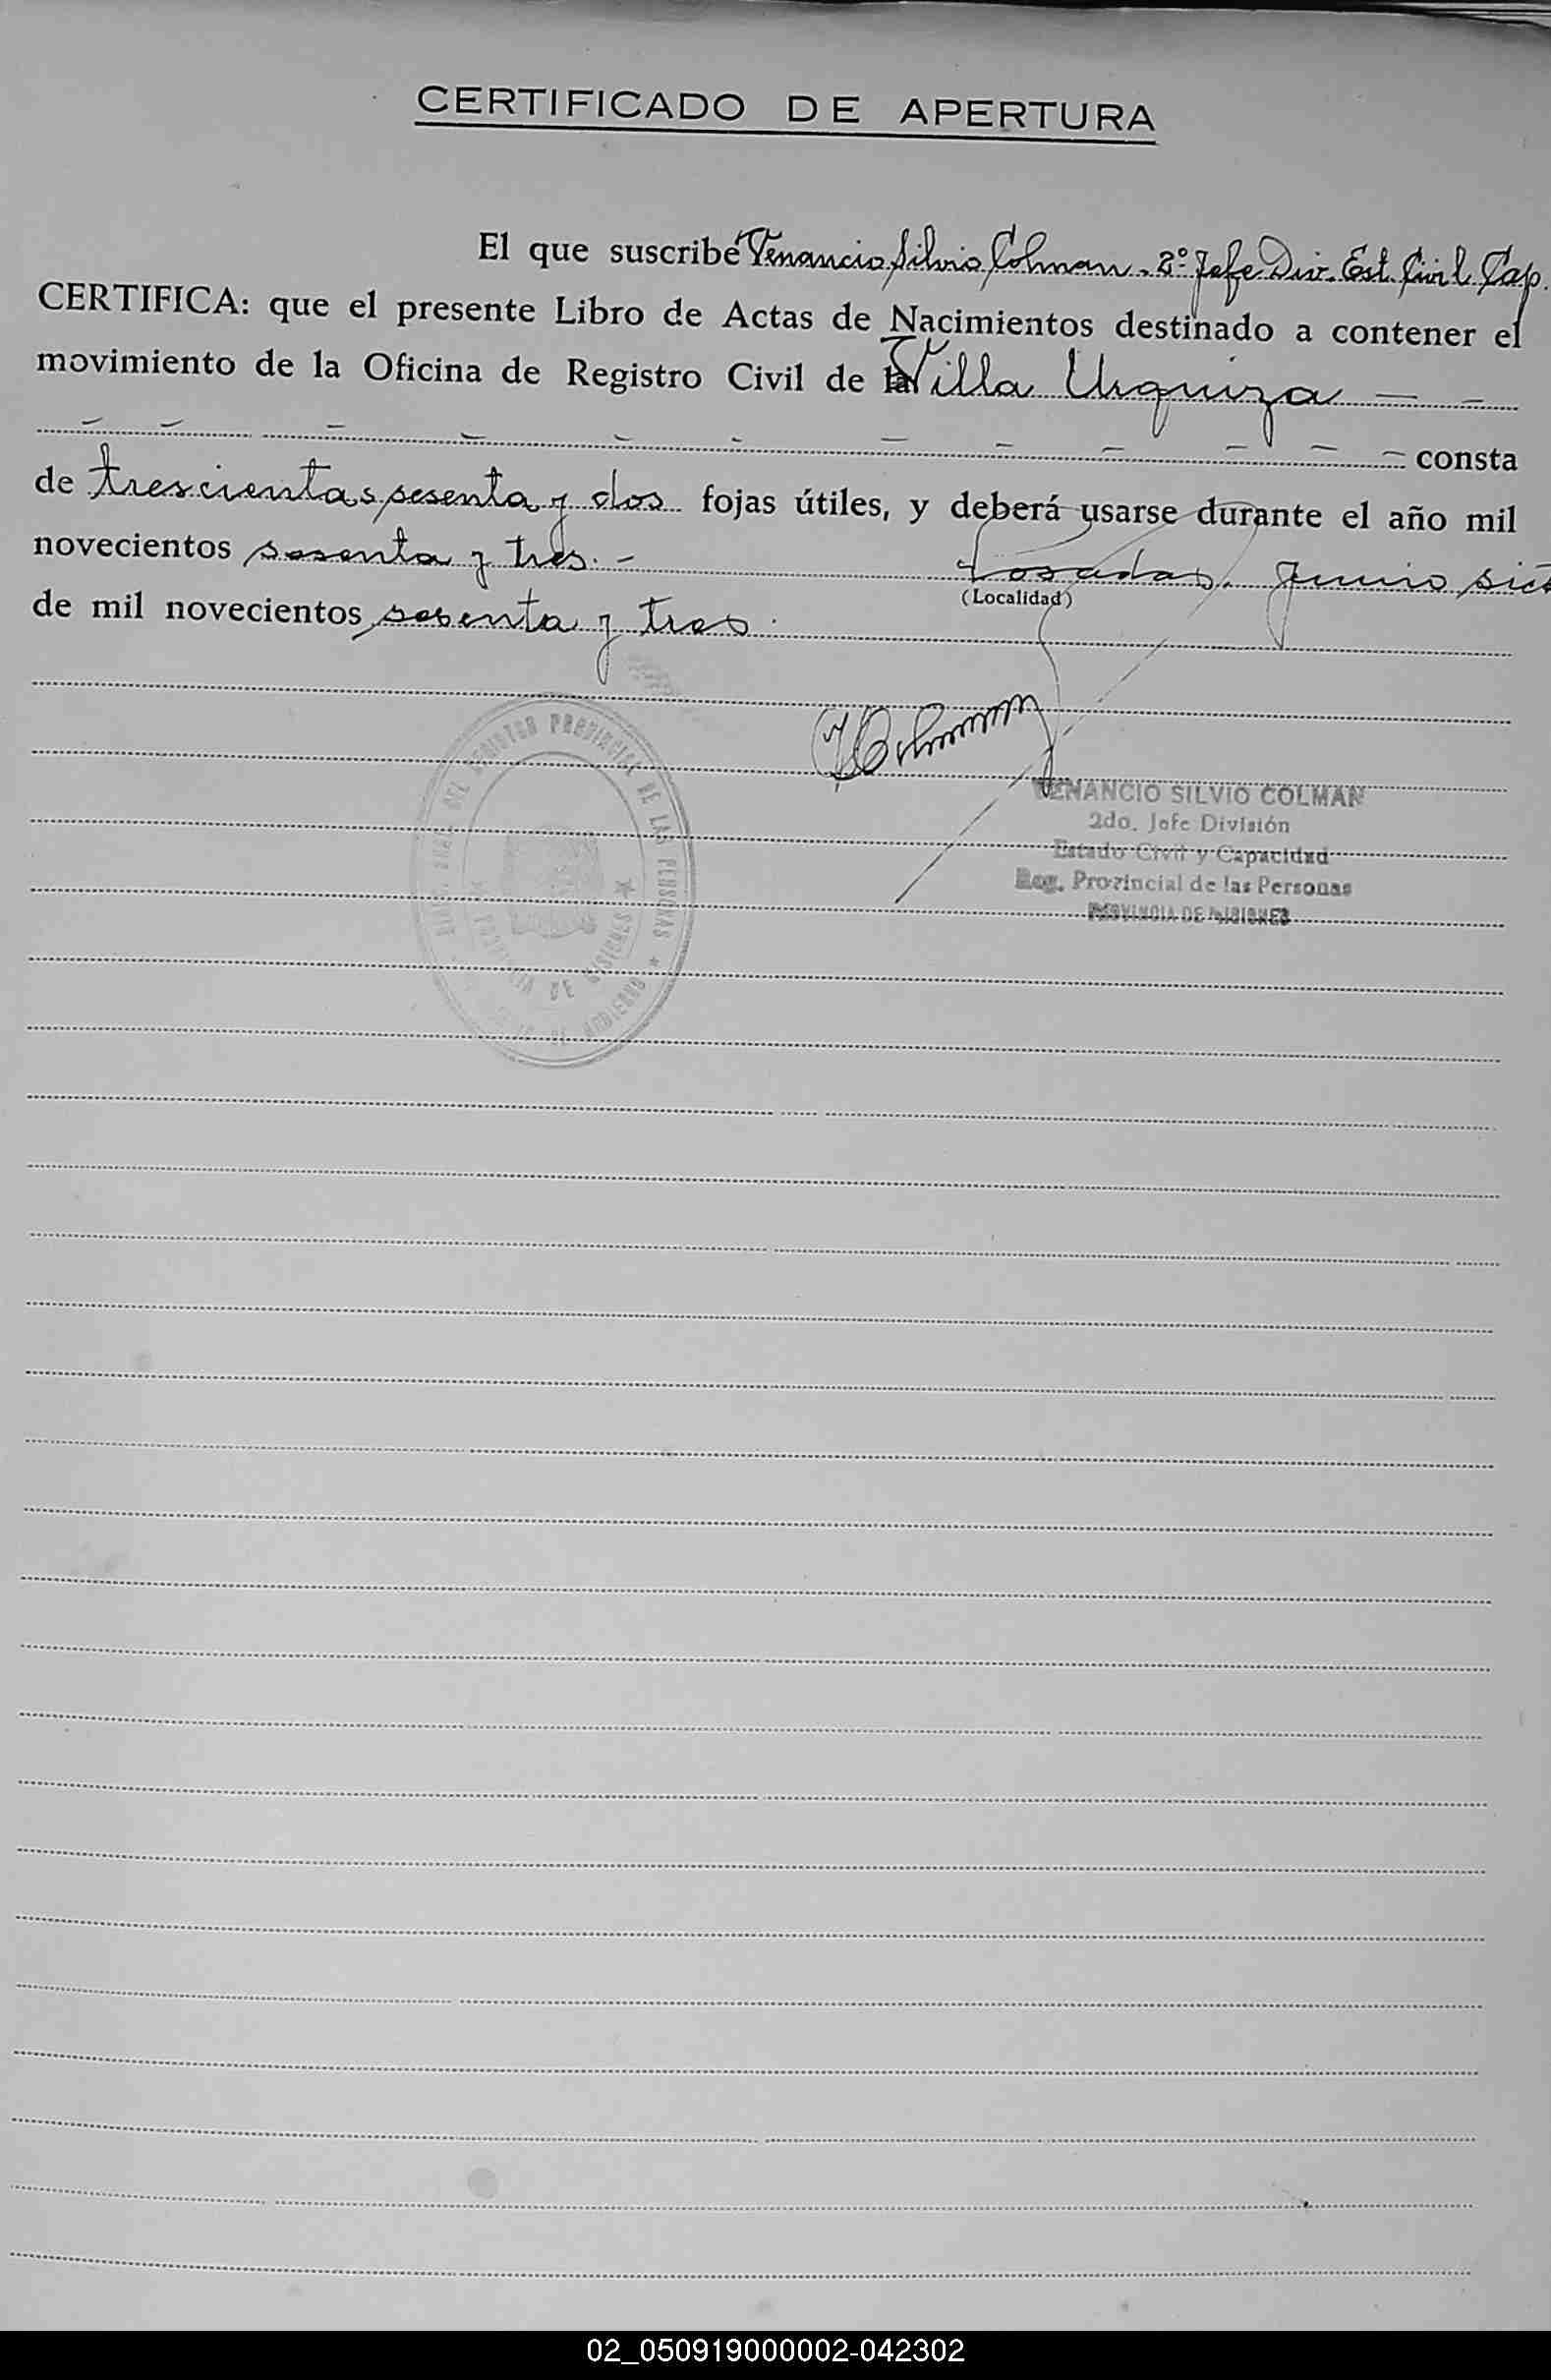 CERTIFICADO DE APERTURA
El que suscribe Venancio Silvio Colman - 2º Jefe Div. Est. Civil Cap.
CERTIFICA: que el presente Libro de Actas de Nacimientos destinado a contener el
movimiento de la Oficina de Registro Civil de la Villa Urquiza — —
— — — — — — — — — — — — consta
de trescientas sesenta y dos fojas útiles, y deberá usarse durante el año mil
novecientos sesenta y tres.- Posadas, Junio siet
(Localidad)
de mil novecientos sesenta y tres.
REGISTRO PROVINCIAL DE LAS PERSONAS
DE MISIONES
VENANCIO SILVIO COLMAN
2do. Jefe División
Estado Civil y Capacidad
Reg. Provincial de las Personas
PROVINCIA DE MISIONES
02_050919000002-042302